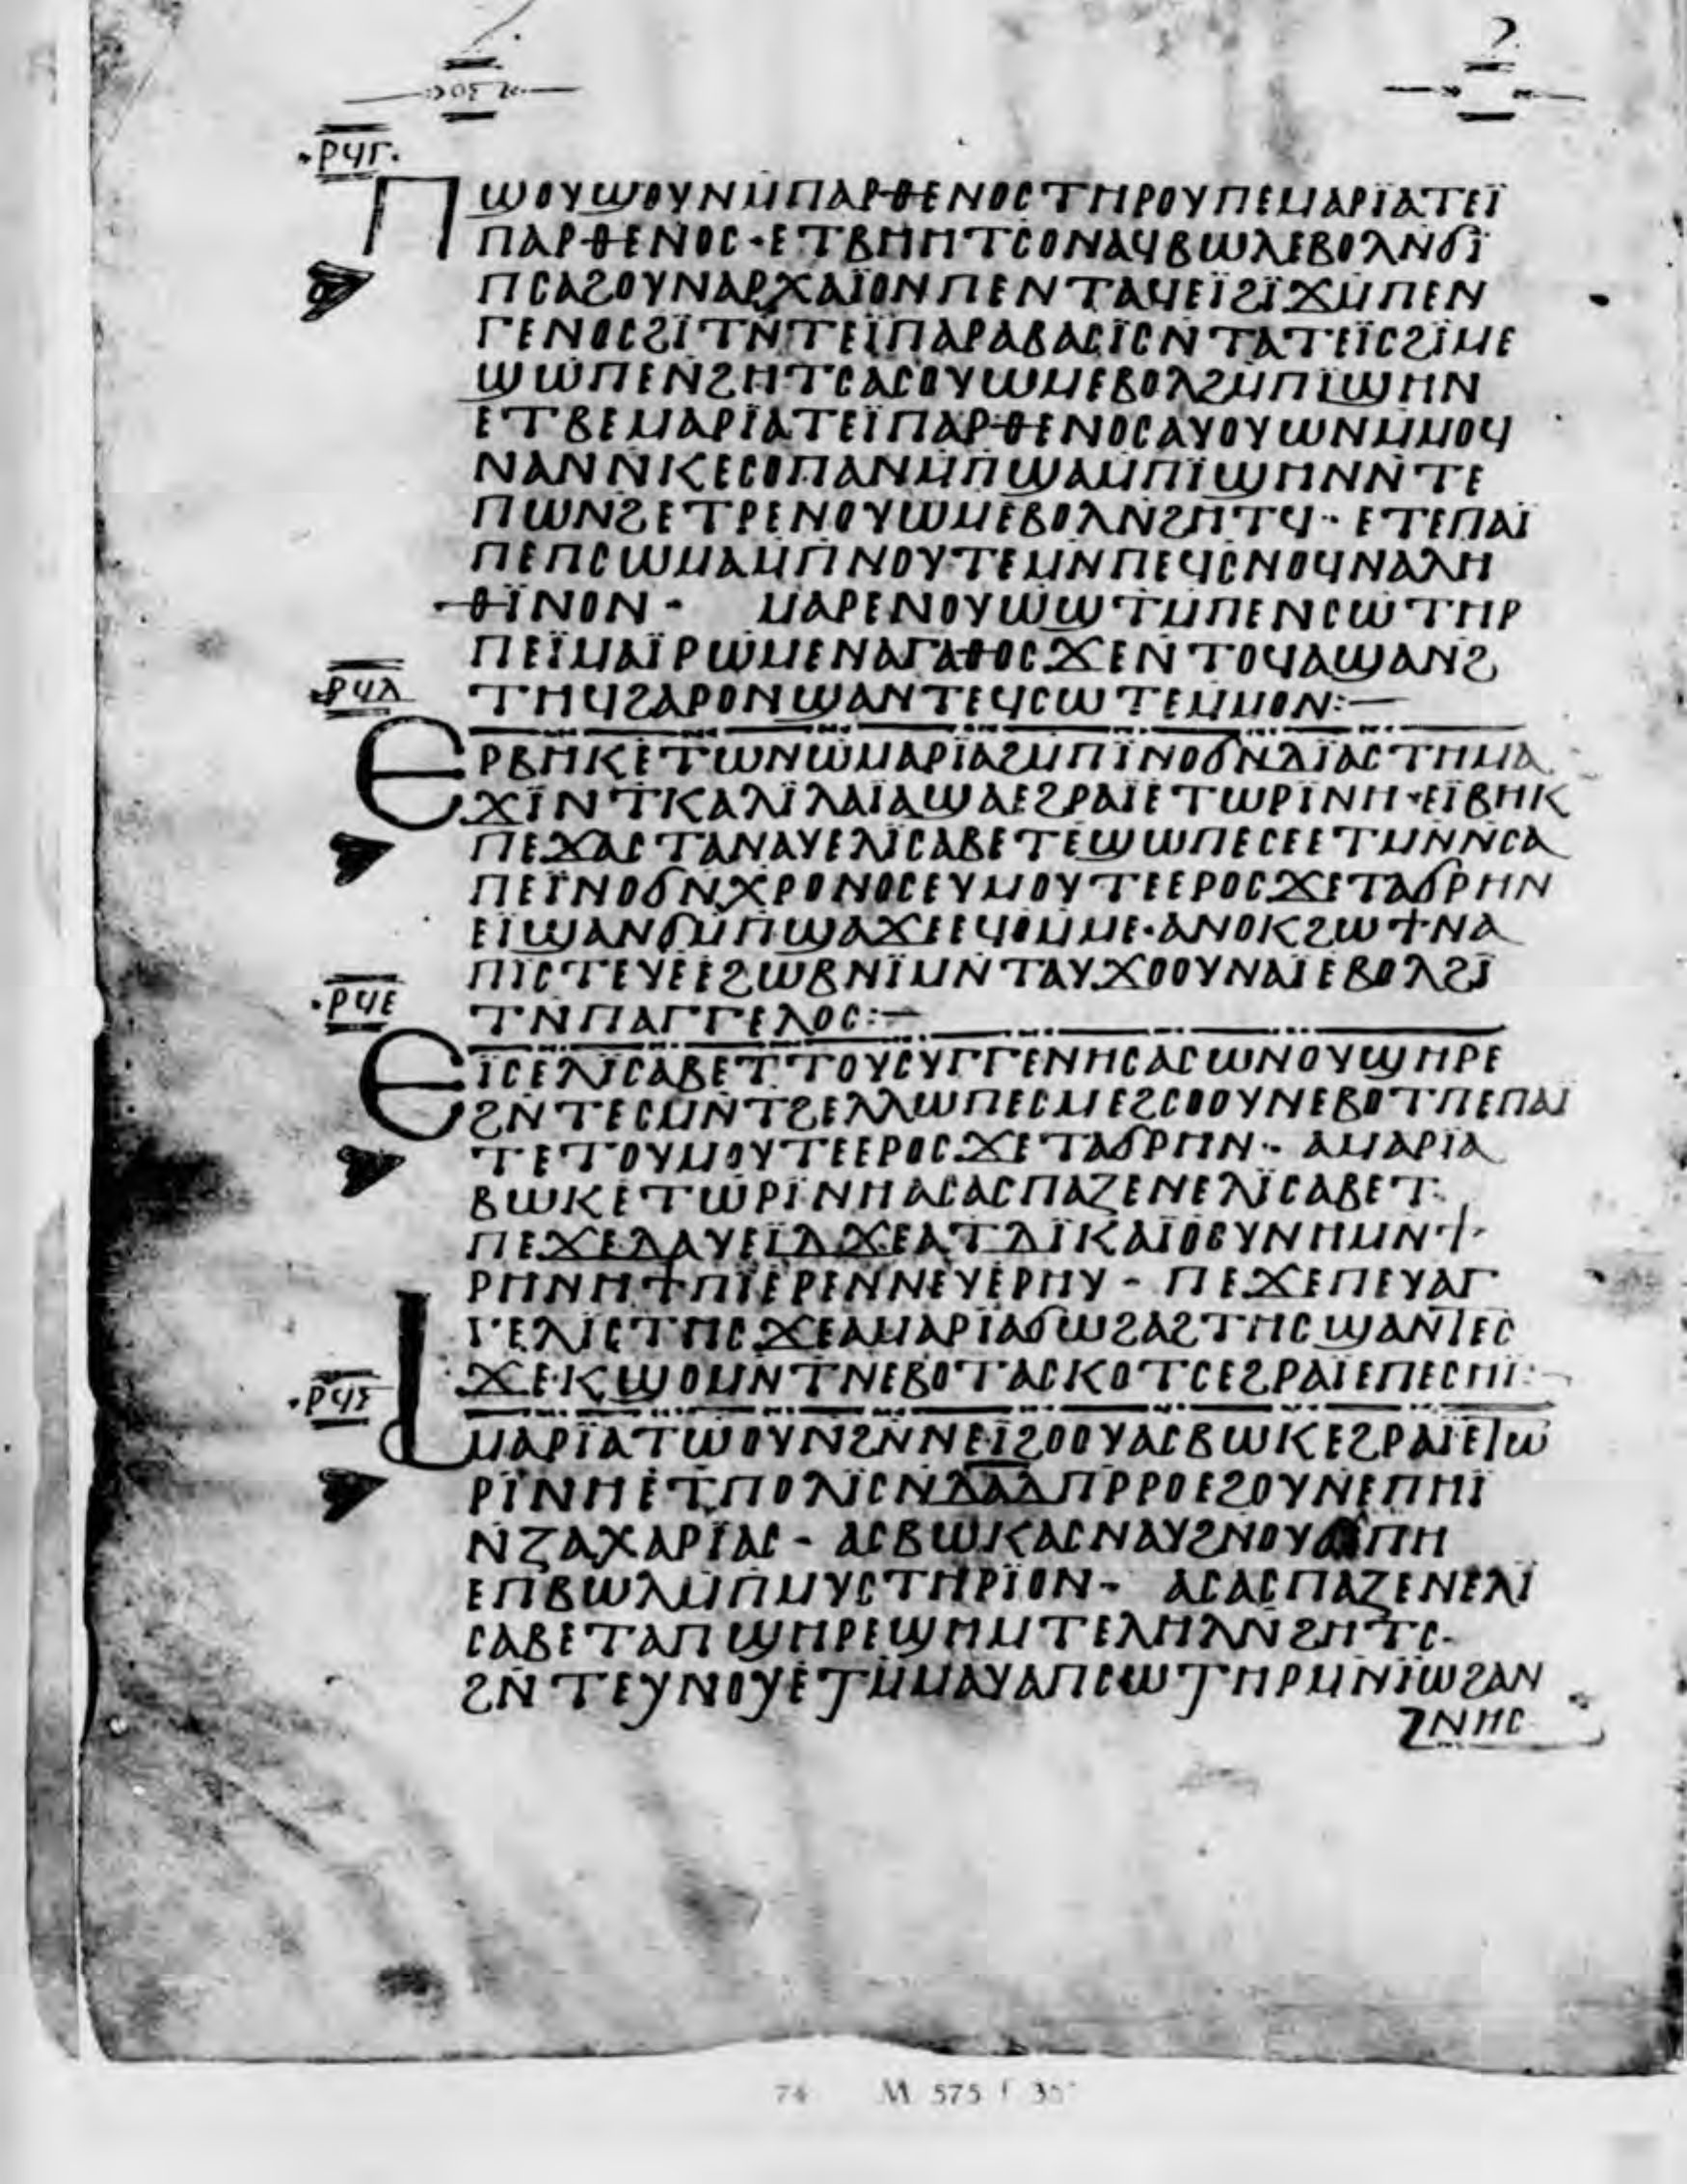 ⲟ︤ⲋ︥
·ⲣϥⲅ·
ⲡϣⲟⲩϣⲟⲩⲛⲙ̄ⲡⲁⲣⲑⲉⲛⲟⲥⲧⲏⲣⲟⲩⲡⲉⲙⲁⲣⲓ̈ⲁⲧⲉⲓ̈
ⲡⲁⲣⲑⲉⲛⲟⲥ·ⲉⲧⲃⲏⲏⲧⲥⲟⲛⲁϥⲃⲱⲗⲉⲃⲟⲗⲛ̄ϭⲓ̈
ⲡⲥⲁϩⲟⲩⲛⲁⲣⲭⲁⲓ̈ⲟⲛⲡⲉⲛⲧⲁϥⲉⲓ̈ϩⲓ̈ϫⲙ̄ⲡⲉⲛ
ⲅⲉⲛⲟⲥϩⲓ̈ⲧⲛ̄ⲧⲉⲓ̈ⲡⲁⲣⲁⲃⲁⲥⲓ̈ⲥⲛ̄ⲧⲁⲧⲉⲓ̈ⲥϩⲓ̈ⲙⲉ
ϣⲱⲡⲉⲛϩⲏⲧⲥⲁⲥⲟⲩⲱⲙⲉⲃⲟⲗϩⲙ̄ⲡⲓ̈ϣⲏⲛ
ⲉⲧⲃⲉⲙⲁⲣⲓ̈ⲁⲧⲉⲓ̈ⲡⲁⲣⲑⲉⲛⲟⲥⲁⲩⲟⲩⲱⲛⲙ̄ⲙⲟϥ
ⲛⲁⲛⲛ̄ⲕⲉⲥⲟⲡⲁⲛⲙ̄ⲡϣⲁⲙ̄ⲡⲓ̈ϣⲏⲛⲛ̄ⲧⲉ
ⲡⲱⲛϩⲉⲧⲣⲉⲛⲟⲩⲱⲙⲉⲃⲟⲗⲛϩⲏⲧϥ·ⲉⲧⲉⲡⲁⲓ̈
ⲡⲉⲡⲥⲱⲙⲁⲙ̄ⲡⲛⲟⲩⲧⲉⲙⲛⲡⲉϥⲥⲛⲟϥⲛⲁⲗⲏ
ⲑⲓ̈ⲛⲟⲛ- ⲙⲁⲣⲉⲛⲟⲩⲱϣⲧⲙ̄ⲡⲉⲛⲥⲱⲧⲏⲣ
ⲡⲉⲓ̈ⲙⲁⲓ̈ⲣⲱⲙⲉⲛⲁⲅⲁⲑⲟⲥϫⲉⲛⲧⲟϥⲁϣⲁⲛϩ
ⲧⲏϥϩⲁⲣⲟⲛϣⲁⲛⲧⲉϥⲥⲱⲧⲉⲙ̄ⲙⲟⲛ:—
·ⲣϥⲇ
ⲉⲣⲃⲏⲕⲉⲧⲱⲛⲱⲙⲁⲣⲓ̈ⲁϩⲙ̄ⲡⲓ̈ⲛⲟϭⲛⲇⲓ̈ⲁⲥⲧⲏⲙⲁ
ϫⲓ̈ⲛⲧⲕⲁⲗⲓ̈ⲗⲁⲓ̈ⲁϣⲁⲉϩⲣⲁⲓ̈ⲉⲧⲱⲣⲓ̈ⲛⲏ·ⲉⲓ̈ⲃⲏⲕ
ⲡⲉϫⲁⲥⲧⲁⲛⲁⲩⲉⲗⲓ̈ⲥⲁⲃⲉⲧⲉϣⲱⲡⲉⲥⲉⲉⲧⲙ̄ⲛⲛ̄ⲥⲁ
ⲡⲉⲓ̈ⲛⲟϭⲛ̄ⲭⲣⲟⲛⲟⲥⲉⲩⲙⲟⲩⲧⲉⲉⲣⲟⲥϫⲉⲧⲁϭⲣⲏⲛ
ⲉⲓ̈ϣⲁⲛϭⲙ̄ⲡϣⲁϫⲉⲉϥⲟⲙ̄ⲙⲉ·ⲁⲛⲟⲕϩⲱϯⲛⲁ
ⲡⲓ̈ⲥⲧⲉⲩⲉⲉϩⲱⲃⲛⲓ̈ⲙⲛⲧⲁⲩϫⲟⲟⲩⲛⲁⲓ̈ⲉⲃⲟⲗϩⲓ̈
ⲧⲛ̄ⲡⲁⲅⲅⲉⲗⲟⲥ:—
·ⲣϥⲉ
ⲉⲓ̈ⲥⲉⲗⲓ̈ⲥⲁⲃⲉⲧⲧⲟⲩⲥⲩⲅⲅⲉⲛⲏⲥⲁⲥⲱⲛⲟⲩϣⲏⲣⲉ
ϩⲛ̄ⲧⲉⲥⲙⲛ̄ⲧϩⲉⲗⲗⲱⲡⲉⲥⲙⲉϩⲥⲟⲟⲩⲛⲉⲃⲟⲧⲡⲉⲡⲁⲓ̈
ⲧⲉⲧⲟⲩⲙⲟⲩⲧⲉⲉⲣⲟⲥϫⲉⲧⲁϭⲣⲏⲛ·ⲁⲙⲁⲣⲓ̈ⲁ
ⲃⲱⲕⲉⲧⲱⲣⲓ̈ⲛⲏⲁⲥⲁⲥⲡⲁⲍⲉⲛⲉⲗⲓ̈ⲥⲁⲃⲉⲧ·
ⲡⲉϫⲉⲇⲁⲩⲉⲓ̈ⲇϫⲉⲁⲧⲇⲓ̈ⲕⲁⲓ̈ⲟⲥⲩⲛⲏⲙⲛϯ
ⲣⲏⲛⲏϯⲡⲓ̈ⲉⲣⲉⲛⲛⲉⲩⲉⲣⲏⲩ-ⲡⲉϫⲉⲡⲉⲩⲁⲅ
ⲅⲉⲗⲓ̈ⲥⲧⲏⲥϫⲉⲁⲙⲁⲣⲓ̈ⲁϭⲱϩⲁϩⲧⲏⲥϣⲁⲛⲧⲉⲥ
ϫⲉⲕϣⲟⲙⲛⲧⲛⲉⲃⲟⲧⲁⲥⲕⲟⲧⲥⲉϩⲣⲁⲓ̈ⲉⲡⲉⲥⲏⲓ̈:—
·ⲣϥⲋ
ⲁⲙⲁⲣⲓ̈ⲁⲧⲱⲟⲩⲛϩⲛ̄ⲛⲉⲓ̈ϩⲟⲟⲩⲁⲥⲃⲱⲕⲉϩⲣⲁⲓ̈ⲉⲧⲱ
ⲣⲓ̈ⲛⲏⲉⲧⲡⲟⲗⲓ̈ⲥⲛ̄ⲇⲁⲇⲡⲣ̄ⲣⲟⲉϩⲟⲩⲛⲉⲡⲏⲓ̈
ⲛ̄ⲍⲁⲭⲁⲣⲓ̈ⲁⲥ-ⲁⲥⲃⲱⲕⲁⲥⲛⲁⲩϩⲛⲟⲩⲁⲡⲏ
ⲉⲡⲃⲱⲗⲙ̄ⲡⲙⲩⲥⲧⲏⲣⲓ̈ⲟⲛ- ⲁⲥⲁⲥⲡⲁⲍⲉⲛⲉⲗⲓ̈
ⲥⲁⲃⲉⲧⲁⲡϣⲏⲣⲉϣⲏⲙⲧⲉⲗⲏⲗⲛ̄ϩⲏⲧⲥ-
ϩⲛ̄ⲧⲉⲩⲛⲟⲩⲉⲧⲙ̄ⲙⲁⲩⲁⲡⲥⲱⲧⲏⲣⲙⲛⲓ̈ⲱϩⲁⲛ
ⲛⲏⲥ
74 M 575 f 35ᵛ